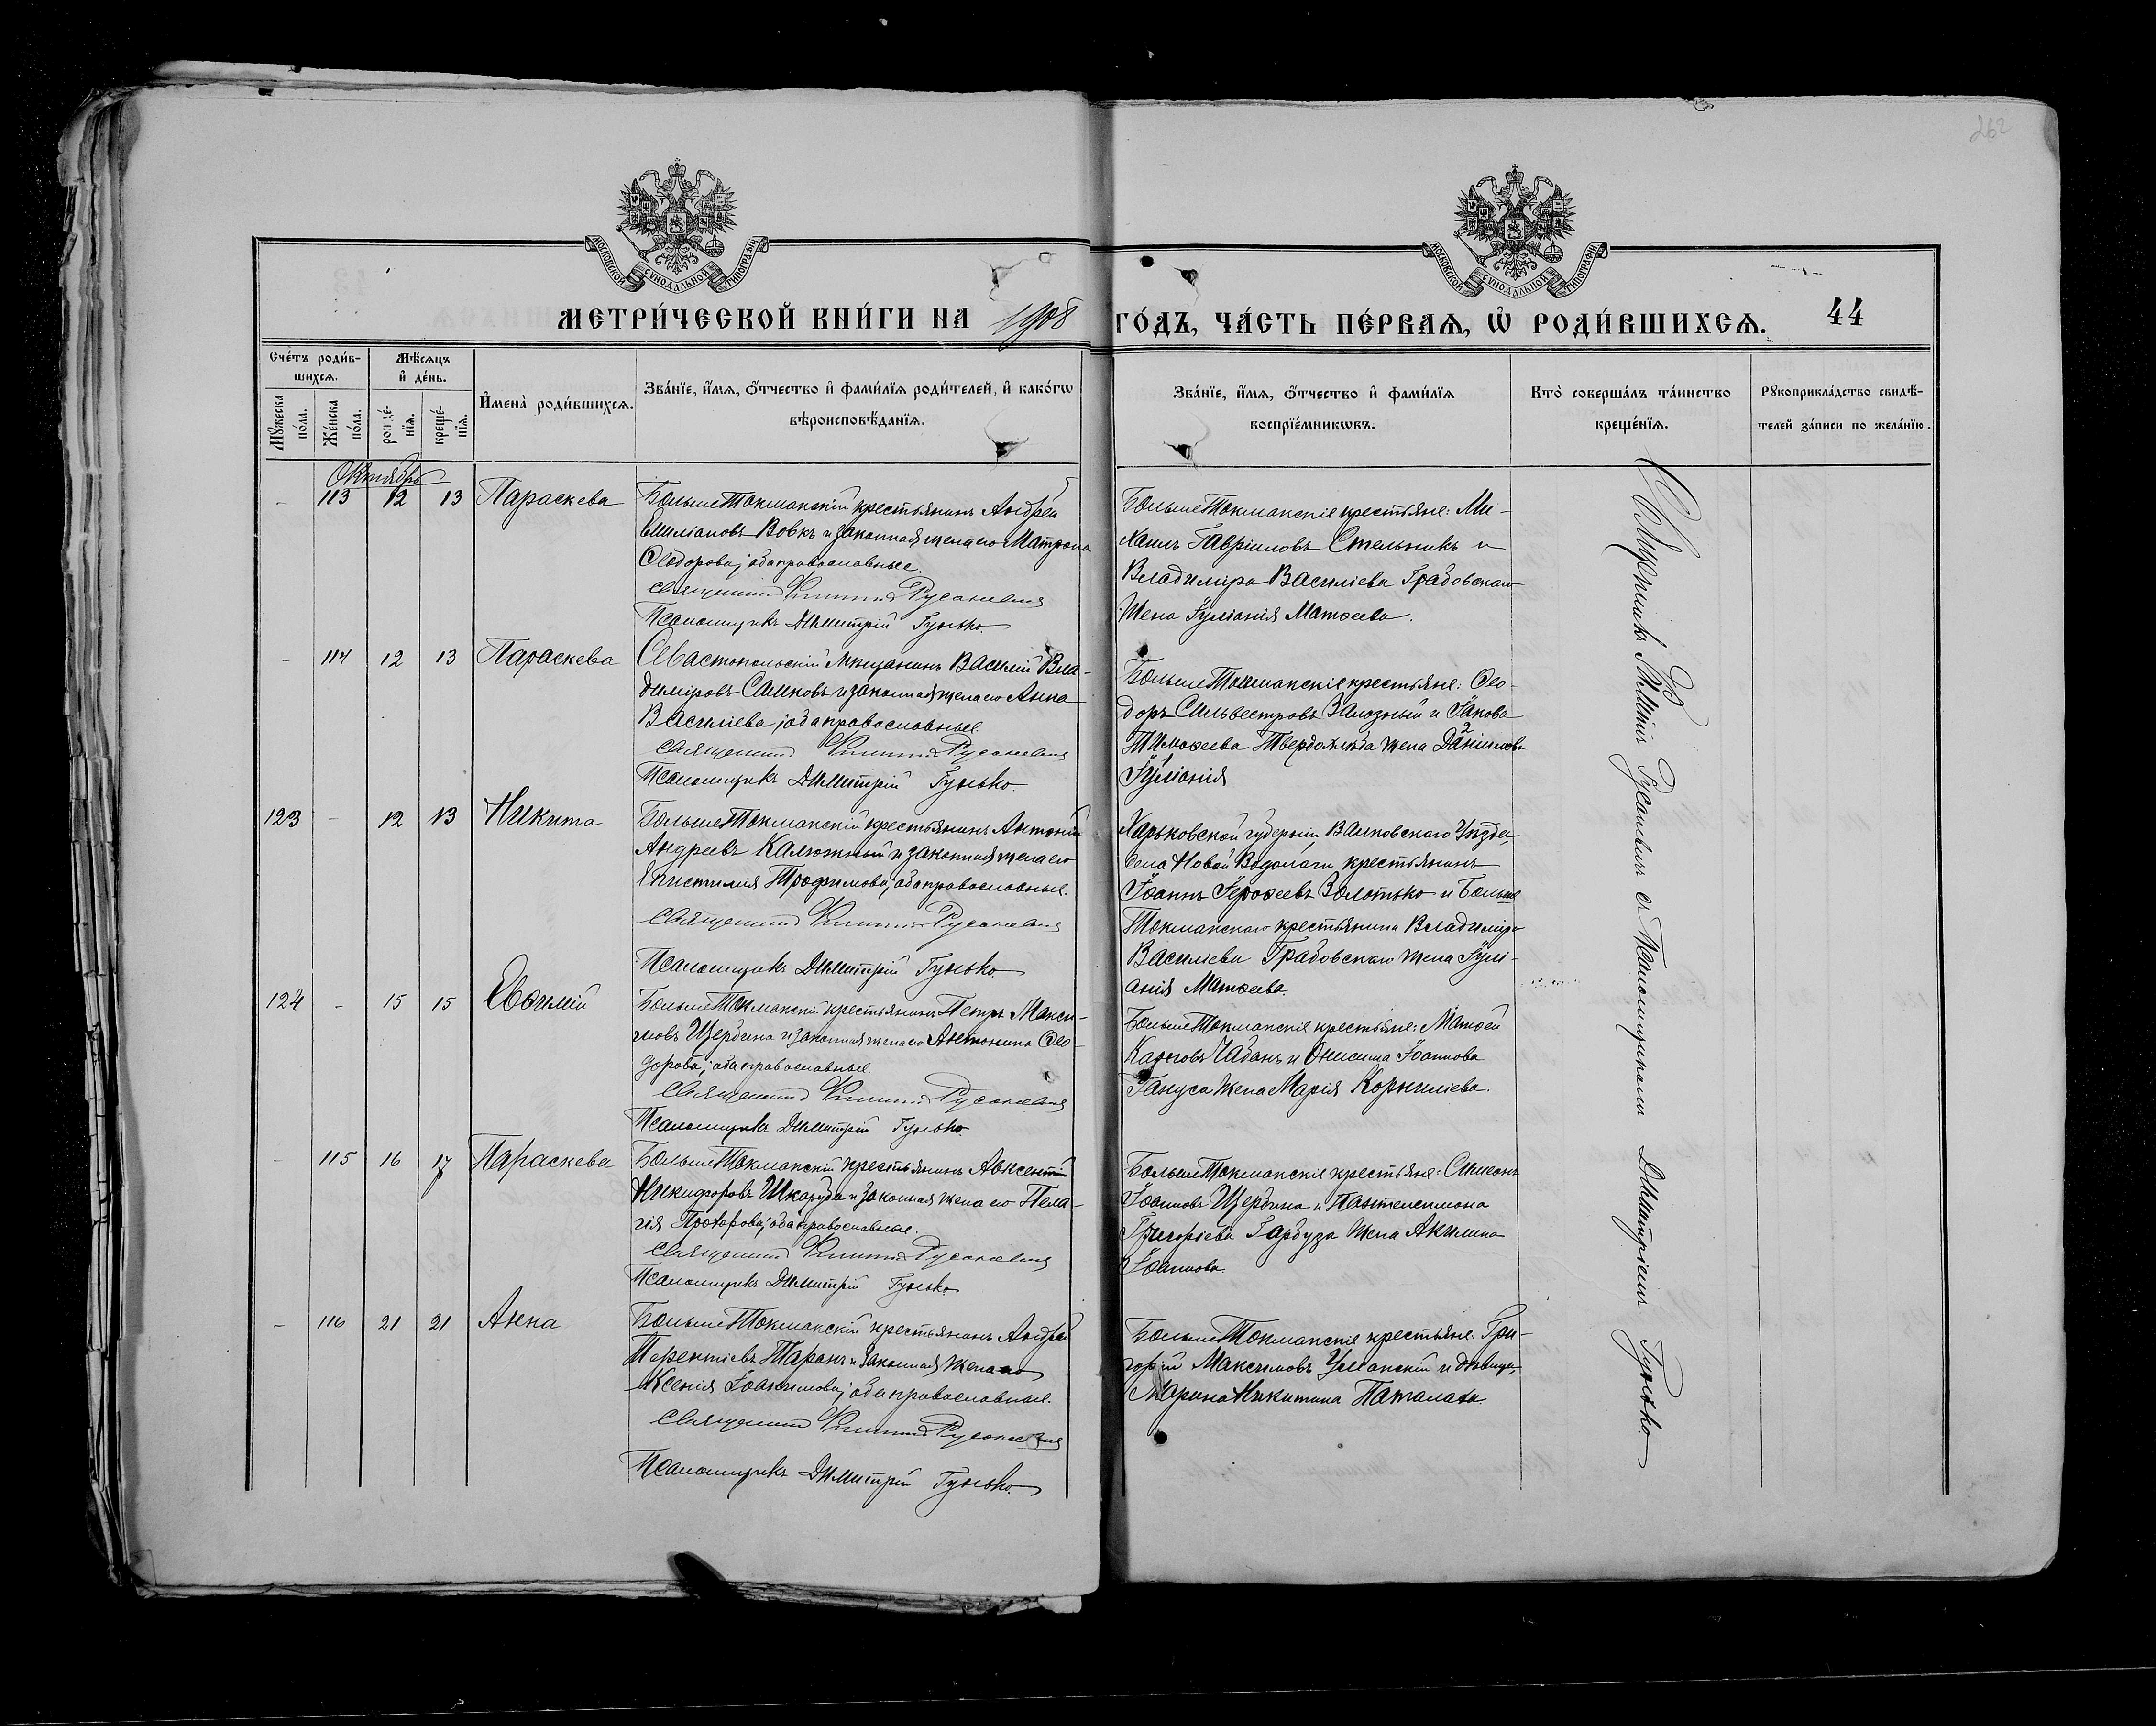 262
МОСКОВСКОЙ СѴНОДАЛЬНОЙ ТИПОГРАФІИ
МОСКОВСКОЙ СѴНОДАЛЬНОЙ ТИПОГРАФІИ
МЕТРИ́ЧЕСКОЙ КНИ́ГИ НА 1908 ГО́ДЪ, ЧА́СТЬ ПЕ́РВАѦ, Ѡ҆ РОДИ́ВШИХСѦ. 44
Сче́тъ роди́в-
шихсѧ.
Мꙋ́жеска по́ла.
Же́нска по́ла.
Мѣ́сѧцъ
и҆ де́нь.
рожде́-
нїѧ.
креще́-
нїѧ.
И҆мена̀ роди́вшихсѧ.
Зва́нїе, и҆́мѧ, ѻ҆́тчество и҆ фами́лїѧ роди́телей, и҆ како́гѡ
вѣроисповѣ́данїѧ.
Зва́нїе, и҆́мѧ, ѻ҆́тчество и҆ фами́лїѧ
воспрїе́мникѡвъ.
Кто̀ соверша́лъ та́инство
креще́нїѧ.
Рꙋкоприкла́дство свидѣ́-
телей за́писи по жела́нїю.
Октябрь
- 113 12 13 Параскева
Больше Токмакскій крестьянинъ Андрей
Емиліановъ Вовкъ и законная жена его Матрона
Ѳеодорова; оба православные.
Священникъ Русаневичъ
Псаломщикъ Димитрій Гунько.
Больше Токмакскіе крестьяне: Ми-
хаилъ Гавріиловъ Стельникъ и
Владиміра ВасиліеваГрадовскаго
жена Іуліанія Матѳеева.
- 114 12 13 Параскева
Севастопольскій мѣщанинъ Василій Вла-
диміровъ Самковъ и законная жена его Анна
Василіева; оба православные.
Священникъ Русаневичъ
Псаломщикъ Димитрій Гунько.
Больше Токмакскіе крестьяне: Ѳео-
доръ Сильвестровъ Залозный и Іакова
Тимоѳеева Твердохлѣба жена Даніилова
Іуліанія
123 - 12 13 Никита
Больше Токмакскій крестьянинъ Антоній
Андреевъ Калюжный и законная жена его
Епистимія Трофимова; оба православные.
Священникъ Русаневичъ
Псаломщикъ Димитрій Гунько
Харьковской губерніи, Валковскаго Уѣзда,
села Новой Водолаги крестьянинъ
Іоаннъ Іероѳеевъ Золотько и Больше
Токмакскаго крестьянина Владиміра
Василіева Градовскаго жена Іулі-
анія Матѳеева.
124 - 15 15 Евѳимій
Больше Токмакскій крестьянинъ Петръ Макси-
мовъ Щербина и законная жена его Антонина Ѳео-
дорова; оба православные.
Священникъ Русаневичъ
Псаломщикъ Димитрій Гунько.
Больше Токмакскіе крестьяне: Матѳей
Карповъ Чабанъ и Онисима Іоаннова
Гануса жена Марія Корниліева.
- 115 16 17 Параскева
Больше Токмакскій крестьянинъ Авксентій
Никифоровъ Шкаруба и законная жена его Пела-
гія Прохорова; оба православные.
Священникъ Русаневичъ
Псаломщикъ Димитрій Гунько
Больше Токмакскіе крестьяне: Симеонъ
Іоанновъ Щербина и Пантелеимона
Григоріева Гарбуза жена Акилина
Іоаннова.
- 116 21 21 Анна
Больше Токмакскій крестьянинъ Андрей
Терентіевъ Таранъ и законная жена его
Ксенія Іоакимова; оба православные.
Священникъ Русаневичъ
Псаломщикъ Димитрій Гунько.
Больше Токмакскіе крестьяне: Гри-
горій Максимовъ Уманскій и дѣвица
Марина Никитина Паталаха.
Священникъ Русаневичъ съ Псаломщикомъ Димитріемъ Гунько.